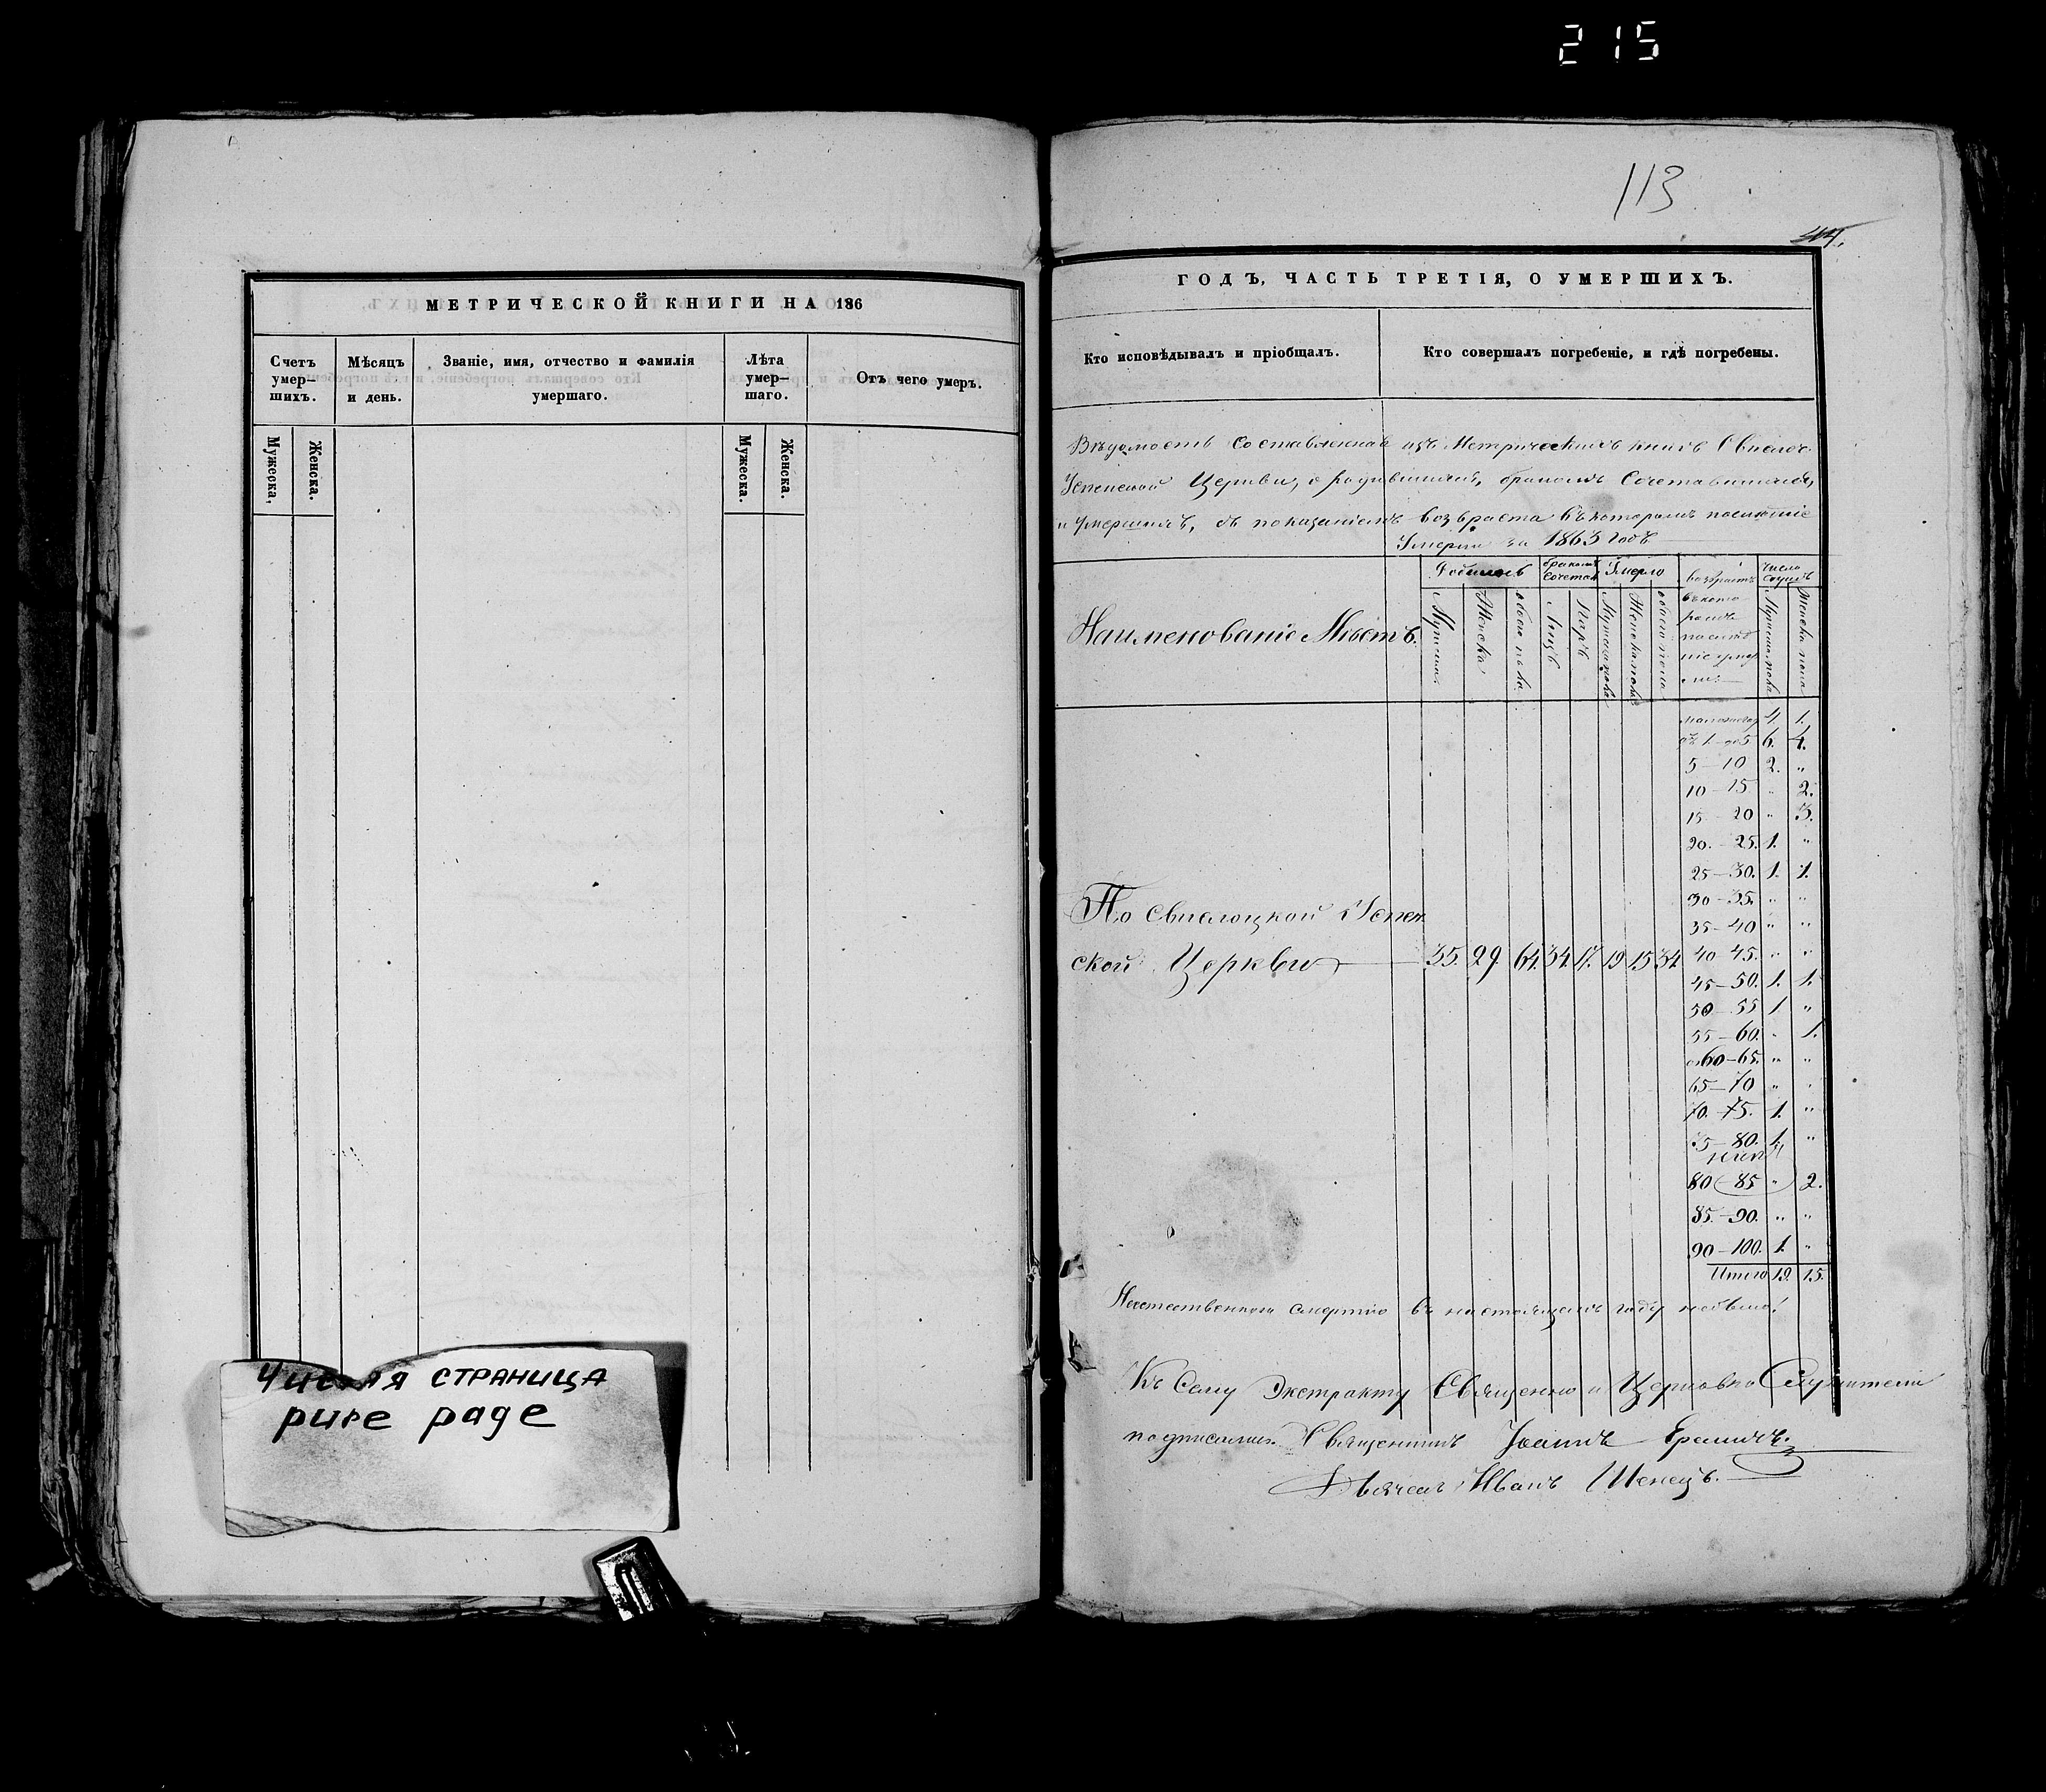 215
МЕТРИЧЕСКОЙ КНИГИ НА 186
Счетъ умер— шихъ.
Мѣсяцъ и день.
Званіе, имя, отчество и фамилія умершаго.
Лѣта умер— шаго.
Отъ чего умеръ.
Мужеска,
Женска.
Мужеска.
Женска.
Чистая страница
pure page
113
44.
ГОДЪ, ЧАСТЬ ТРЕТІЯ, О УМЕРШИХЪ.
Кто исповѣдывалъ и пріобщалъ.
Кто совершалъ погребеніе, и гдѣ погребены.
Вѣдомость составленная изъ Метрическихъ книгъ Свислоч.
Успенской Церкви, о родившихся, бракомъ Сочетавшихся,
и Умершихъ, съ показаніемъ возраста въ которомъ послѣдніе
Умерли за 1863 Годъ
Наименованіе Мѣстъ.
Родилось
бракомъ Сочетал
Умерло
возрастъ
въ кото
ромъ
послѣд
ніе умер
ли
Число
Мужеска
Женска
обоего пола
Лицъ
Паръ
Мужеска пола
Женска пола
обоего пола
Мужеска пола
Женска пола
4. 1.
отъ 1.—до 5 6. 4.
5—10 2. „
10—15 „ 2.
15—20 „ 3.
20.—25. 1. „
25—30. 1. 1.
30—35. „ „
35—40 „ „
По Свислоцкой Успен
ской Церкви 35. 29. 64. 34. 17. 19 15 34. 40—45. „ „
45—50. 1. 1.
50—55 1 „
55—60. „ 1.
60—65. „ „
65—70 „ „
70.—75. 1. „
75—80. 1. „
80—85 „ 2.
85.—90. „ „
90—100. 1. „
Итого 19. 15.
Неестественною смертію въ настоящемъ году небыло.
Къ Сему Экстракту Священно и Церковно Служители
подписались. Священникъ Іоаннъ
Дьячекъ Иванъ